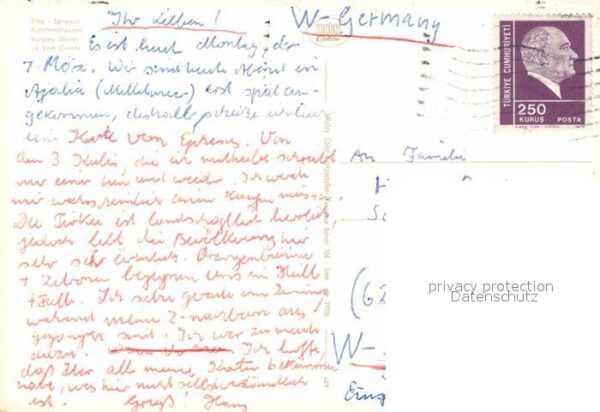 Efes - Ephesus
Kuretenstrasse
Kuretes Street
La Voie Curete
Ihr Lieben!
W-Germany
Es ist heute Montag, der
7. März. Wir sind heute Abend in
(Mittelmeer) erst spät an-
gekommen, deshalb
eine Karte von Ephesus. Von
den 3 Kulis die ich mithabe schreibt
nur einer hin und wieder. Ich werde
mir wahrscheinlich einen kaufen müssen.
Die Türkei ist landschaftlich herrlich,
jedoch lebt die Bevölkerung hier
sehr sehr ärmlich. Orangenbäume
+ Zitronen begegnen uns in Hülle
+ Fülle. Ich sitze gerade im Zimmer,
während meine Z.-nachbarn aus-
gegangen sind. Ich war zu müde
dazu. Ich hoffe,
daß Ihr alle meine Karten bekommen
habt, was hier nicht selbstverständlich
ist. Gruß! Hans
TÜRKİYE CUMHURİYETİ
250
KURUŞ POSTA
An Familie
(62
W-
privacy protection
Datenschutz
5